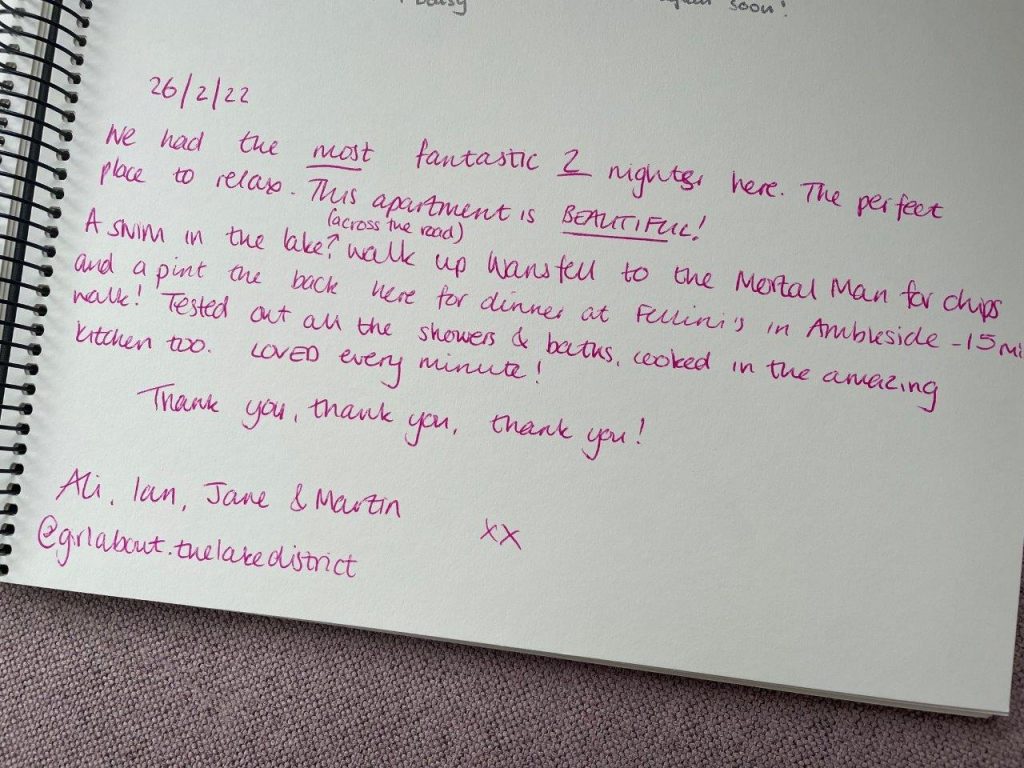 Daisy
again soon!
26/2/22
We had the most fantastic 2 nights here. The perfect
place to relax. This apartment is BEAUTIFUL!
(across the road)
A swim in the lake? Walk up Wansfell to the Mortal Man for chips
and a pint the back here for dinner at Fellini's in Ambleside - 15 mi
walk! Tested out all the showers & baths, cooked in the amazing
kitchen too. LOVED every minute!
Thank you, thank you, thank you!
Ali, Ian, Jane & Martin
xx
@grlabout.thelakedistrict